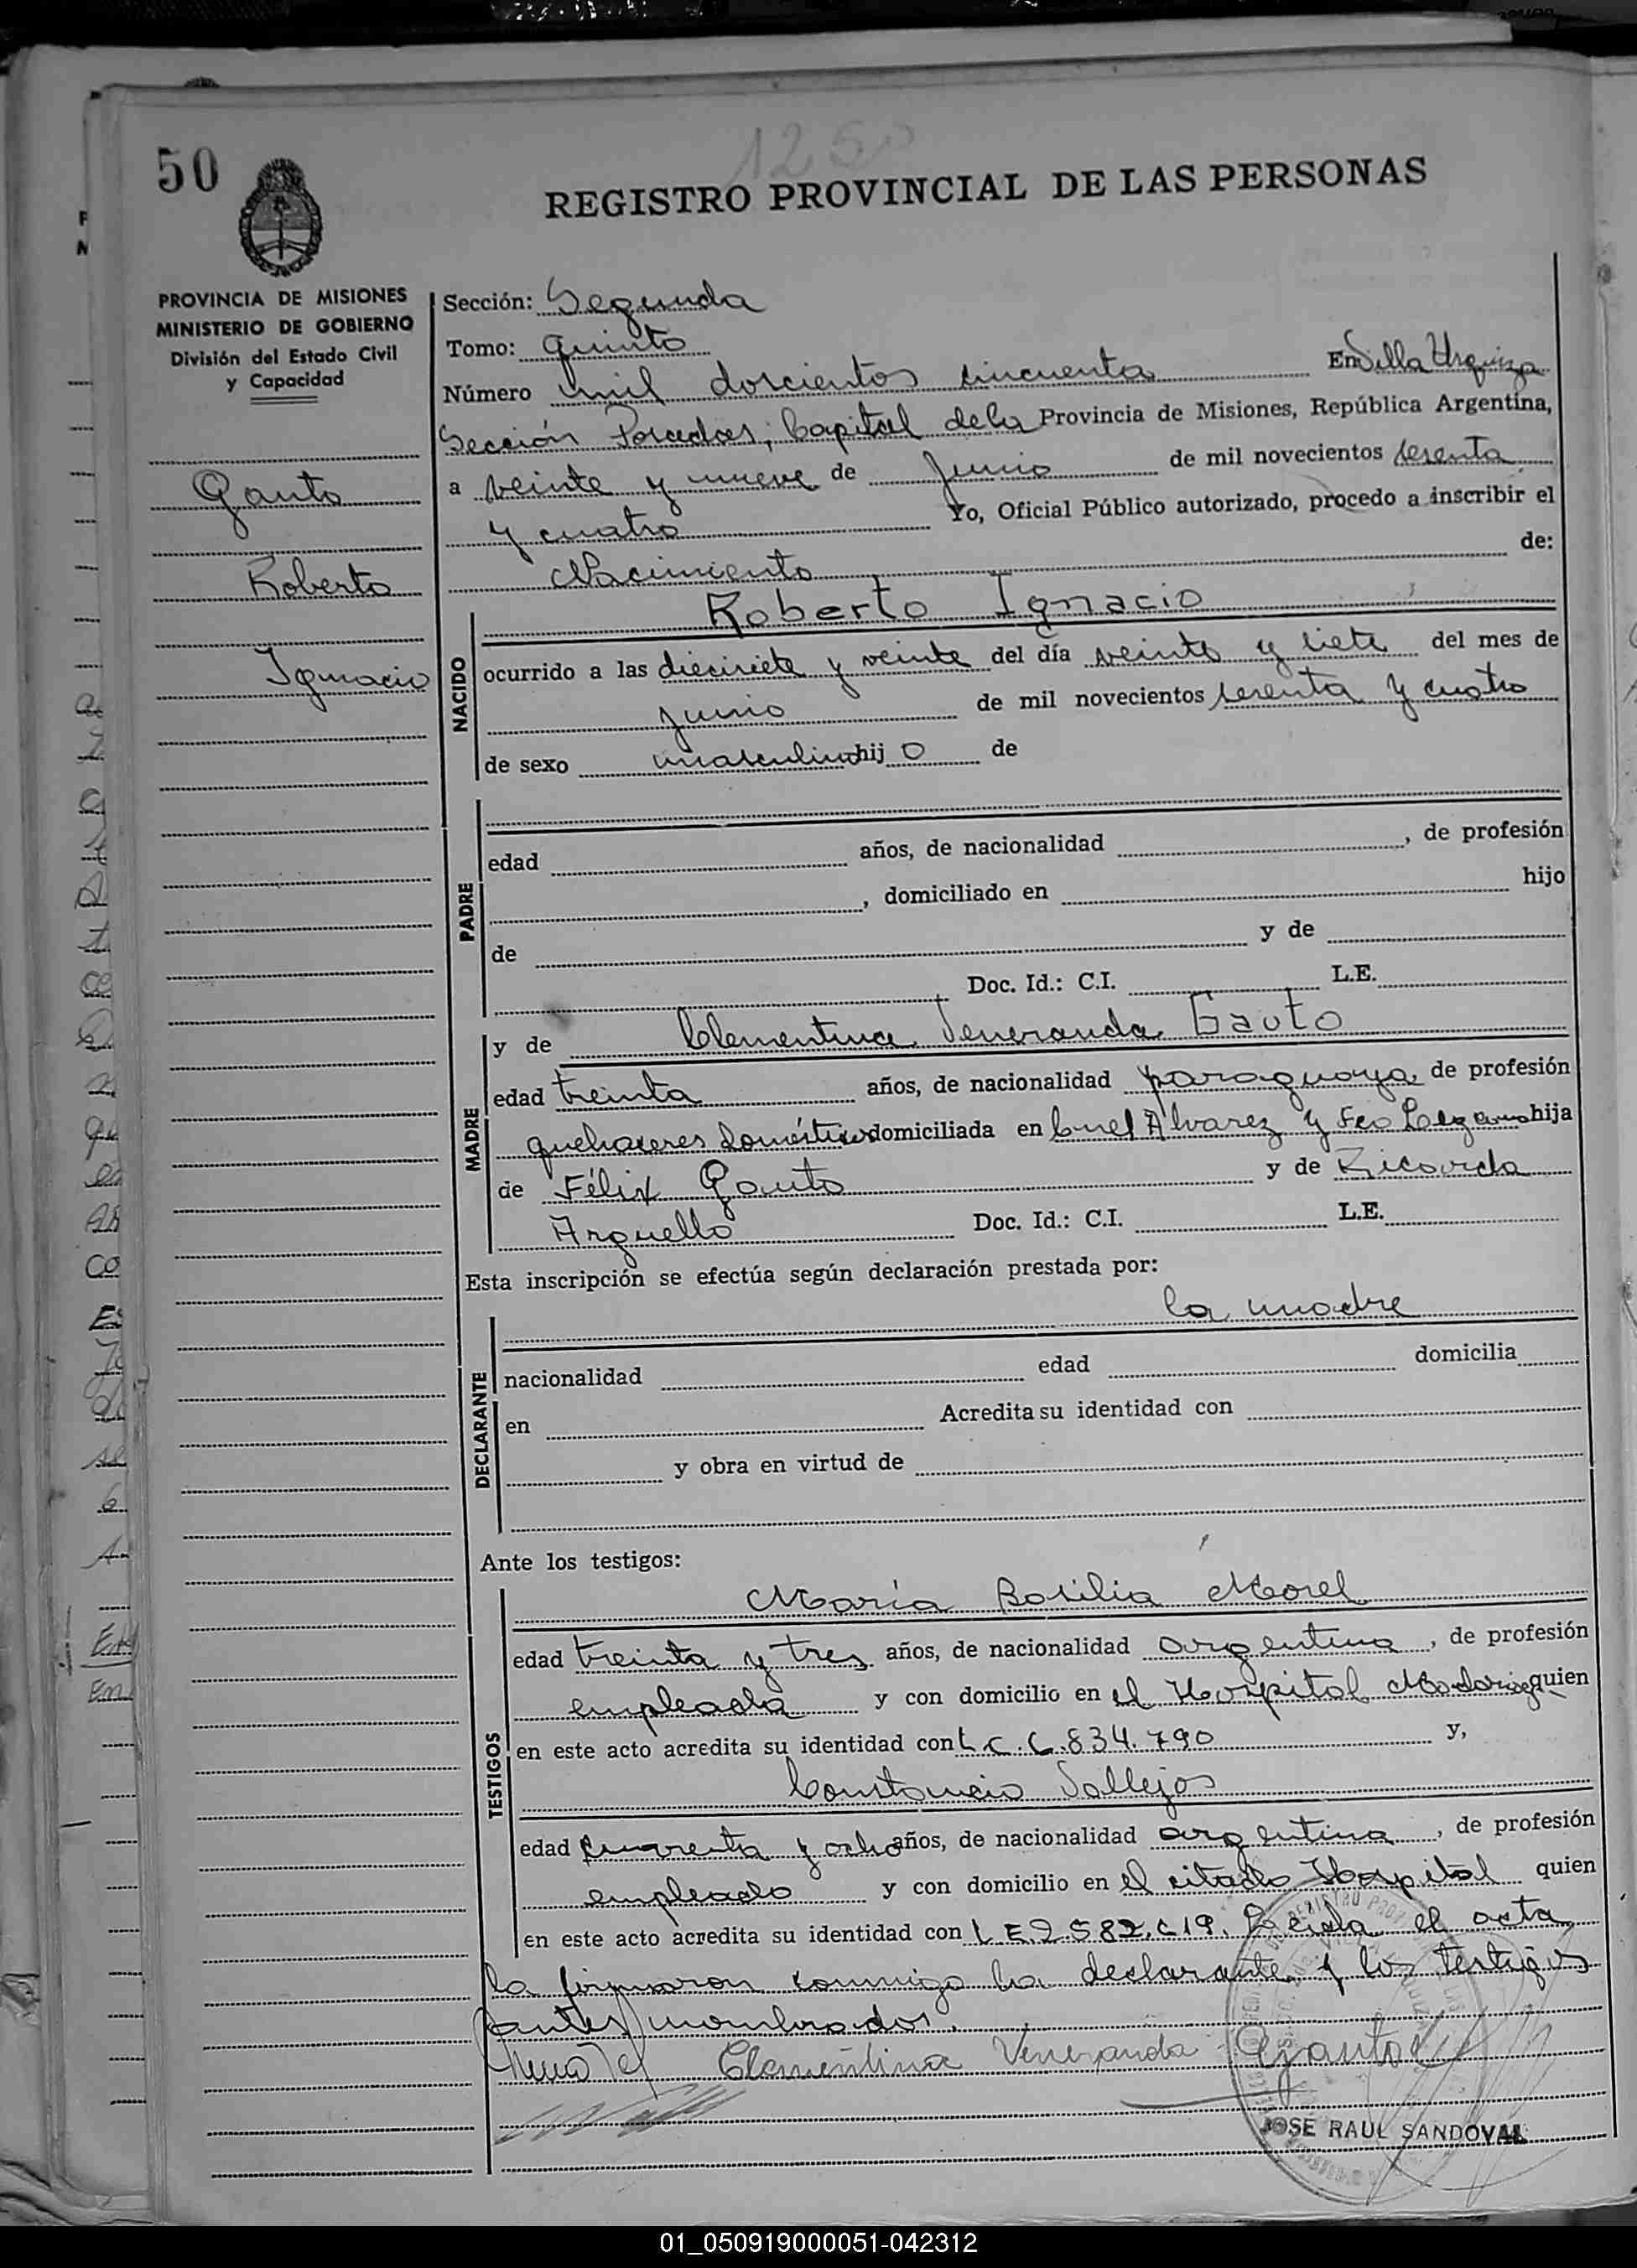 1250
50
REGISTRO PROVINCIAL DE LAS PERSONAS
PROVINCIA DE MISIONES
MINISTERIO DE GOBIERNO
División del Estado Civil
y Capacidad
Gauto
Roberto
Ignacio
Sección: Segunda
Tomo: quinto
Número mil doscientos cincuenta En Villa Urquiza
Sección Posadas, Capital de la Provincia de Misiones, República Argentina,
a veinte y nueve de Junio de mil novecientos sesenta
y cuatro Yo, Oficial Público autorizado, procedo a inscribir el
Nacimiento de:
NACIDO
Roberto Ignacio
ocurrido a las diecisiete y veinte del día veinte y siete del mes de
junio de mil novecientos sesenta y cuatro
de sexo masculino hij o de
PADRE
edad años, de nacionalidad , de profesión
, domiciliado en hijo
de y de
Doc. Id.: C.I. L.E.
MADRE
y de Clementina Veneranda Gauto
edad treinta años, de nacionalidad paraguaya de profesión
quehaceres domésticos domiciliada en Cnel Alvarez y Fco hija
de Félix Gauto y de Ricarda
Arguello Doc. Id.: C.I. L.E.
Esta inscripción se efectúa según declaración prestada por:
la madre
DECLARANTE
nacionalidad edad domicilia
en Acredita su identidad con
y obra en virtud de
Ante los testigos:
TESTIGOS
María Basilia Morel
edad treinta y tres años, de nacionalidad argentina, de profesión
empleada y con domicilio en el Hospital Madariaga quien
en este acto acredita su identidad con L.C. 6.834.790 y,
Constancio Vallejos
edad cuarenta y ocho años, de nacionalidad argentina, de profesión
empleado y con domicilio en el citado Hospital quien
en este acto acredita su identidad con L.E. 2.582.619. Leída el acta
la firmaron conmigo la declarante y los testigos
antes nombrados.
Clementina Veneranda Gauto
JOSE RAUL SANDOVAL
01_050919000051-042312